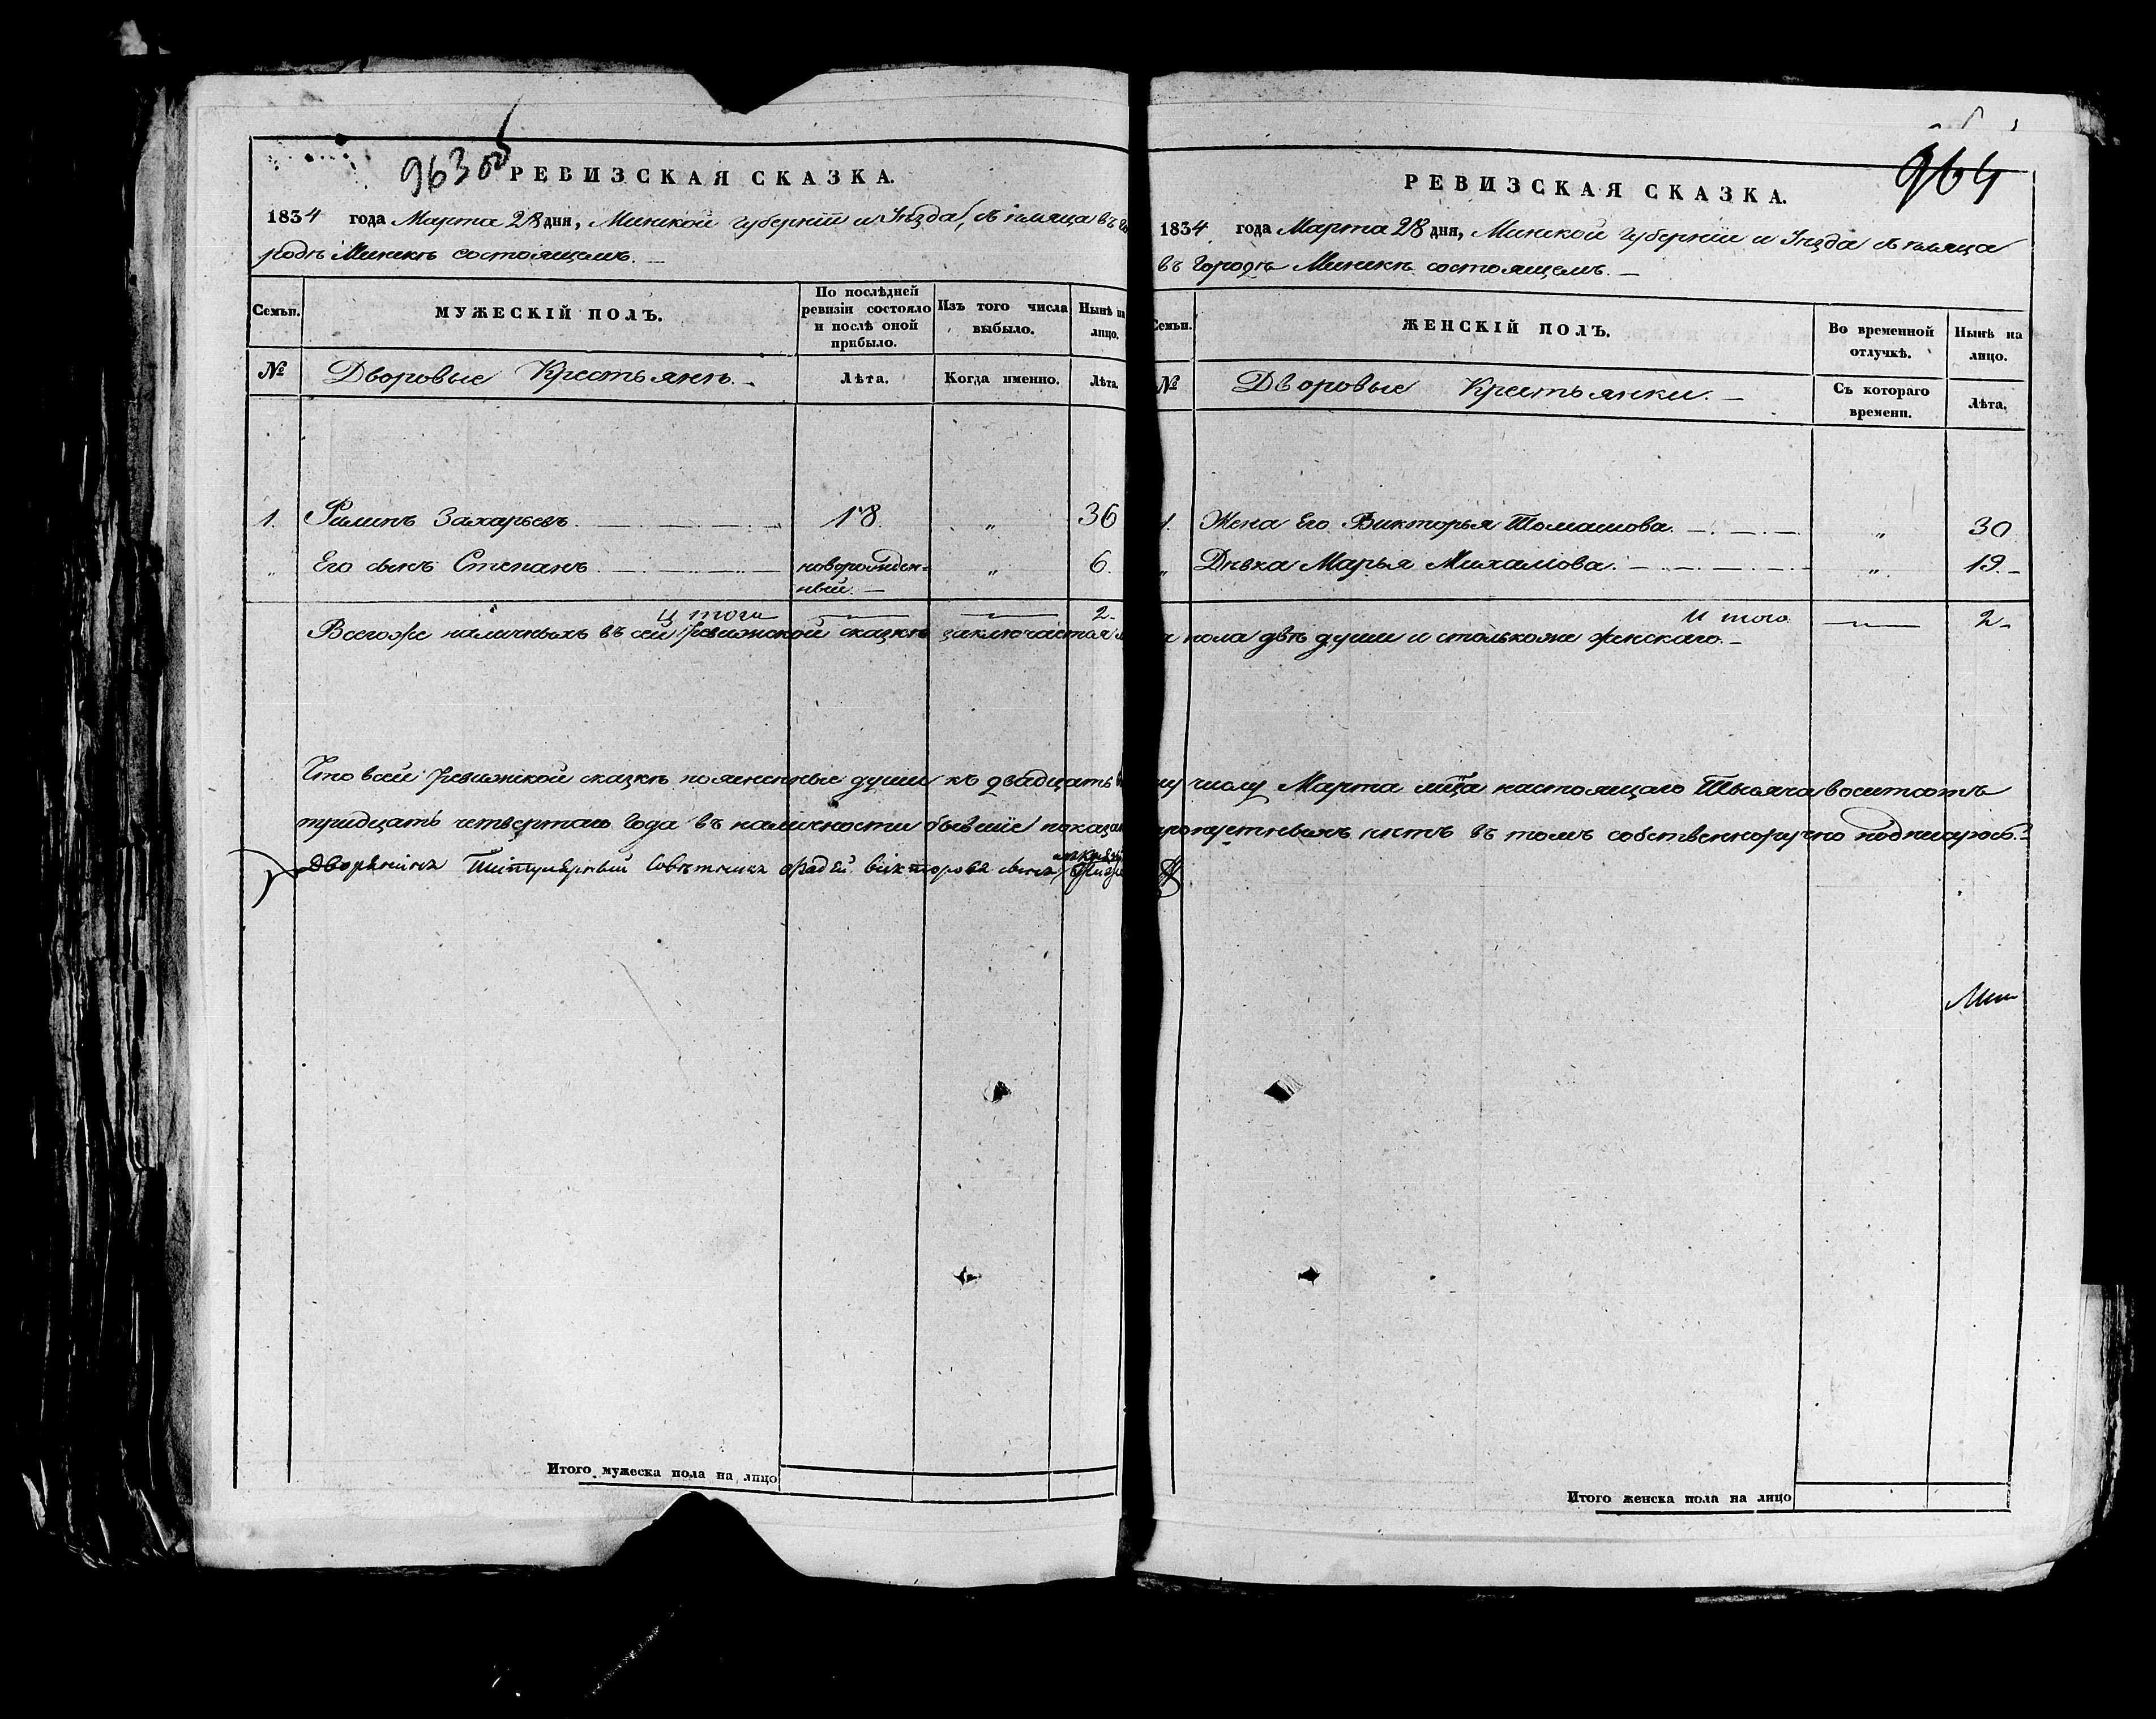 963 об
РЕВИЗСКАЯ СКАЗКА.
1834 года Марта 28 дня, Минской Губерніи и Уѣзда, съ пляца въ го
родѣ Минскѣ состоящемъ. —
Семьи. МУЖЕСКІЙ ПОЛЪ. По послѣдней ревизіи состояло и послѣ оной прибыло. Изъ того числа выбыло. Нынѣ на лицо.
№ Дворовые Крестьяне. — Лѣта. Когда именно. Лѣта.
1. Филипъ Захарьевъ. 18 „ 36
„ Его сынъ Степанъ. новорожден-
ный. — „ 6.
Итого 2.
Всегоже наличныхъ въ сей ревизской сказкѣ заключается
Что всей ревизской сказкѣ поясненные души къ двадцать
тридцать четвертаго Года въ наличности бывшіе показа
Дворянинъ Титулярный Совѣтникъ Фадѣй Викторовъ сынъ
Итого мужеска пола на лицо
964
РЕВИЗСКАЯ СКАЗКА.
1834 года Марта 28 дня, Минской Губерніи и Уѣзда съ пляца
въ Городѣ Минскѣ состоящемъ. —
Семьи. ЖЕНСКІЙ ПОЛЪ. Во временной отлучкѣ. Нынѣ на лицо.
№ Дворовые Крестьянки. — Съ котораго времени. Лѣта.
1. Жена Его Викторья Томашова. „ 30
„ Дѣвка Марья Михалова. „ 19. —
Итого 2 —
пола двѣ души и столькоже женскаго. —
му числу Марта мца настоящаго Тысяча восемсотъ
пропустныхъ нѣтъ въ томъ собственноручно подписуюсь. —
Итого женска пола на лицо